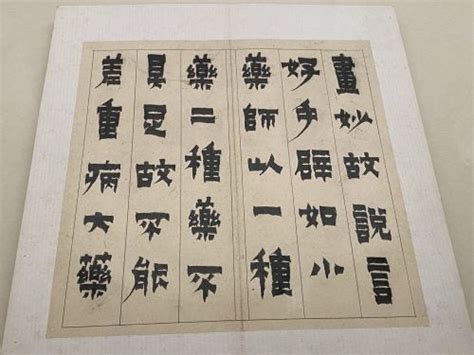 畫妙故說言
好手辟如小
藥師以一種
藥二種藥不
具足故不能
差重病大藥